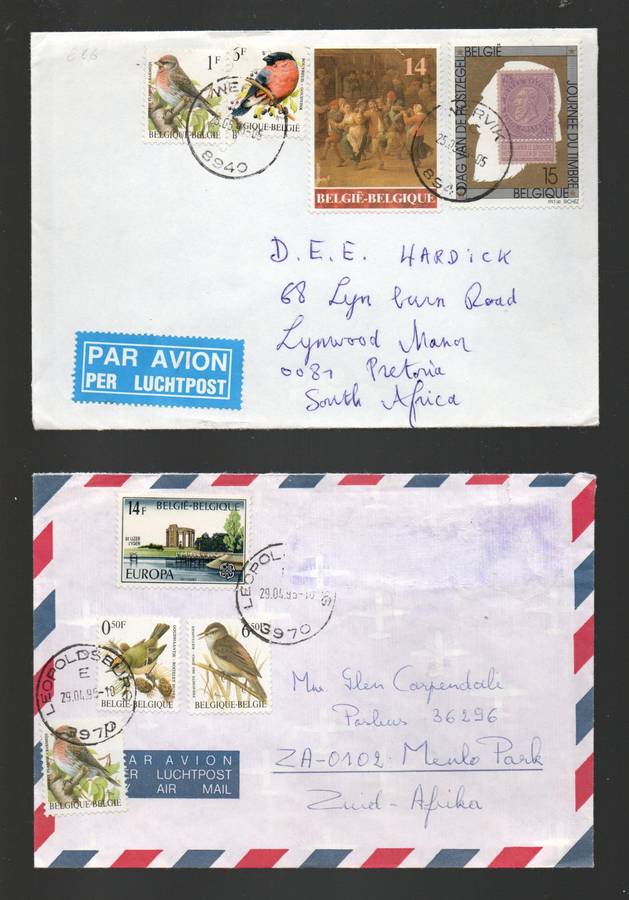 1F
5F
14
BELGIË
DAG VAN DE POSTZEGEL
JOURNÉE DU TIMBRE
15
BELGIQUE
BELGIË-BELGIQUE
BELGIË-BELGIQUE
BELGIË-BELGIQUE
8940
D.E.E. HARDICK
68 Lyn burn Road
Lynwood Manor
0081 Pretoria
South Africa
PAR AVION
PER LUCHTPOST
BELGIË-BELGIQUE
14F
DE IJZER
L'YSER
EUROPA
LEOPOL
29.04.95-10
3970
0,50F
BELGIË-BELGIQUE
6,50F
BELGIË-BELGIQUE
LEOPOLDSBURG
E
29.04.95-10
3970
BELGIQUE-BELGIË
PAR AVION
PER LUCHTPOST
AIR MAIL
Glen Carpendali
36296
ZA-0102 - Menlo Park
Zuid-Afrika